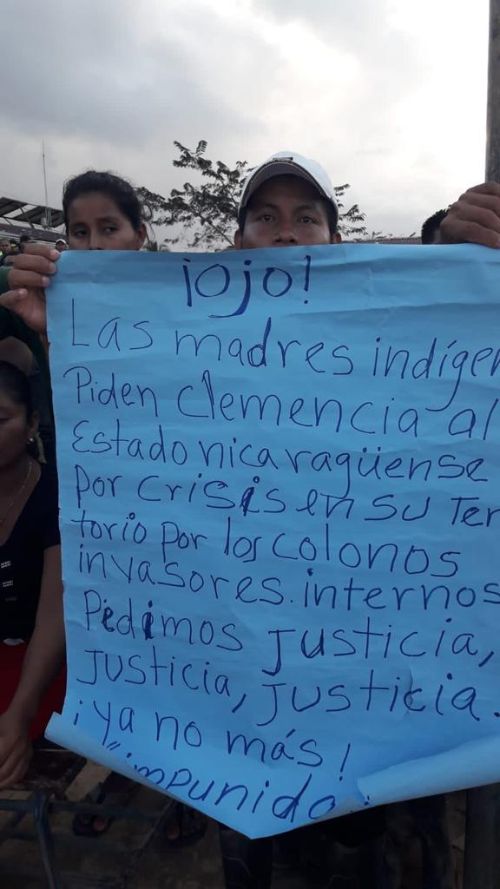 ¡Ojo!
Las madres indígen
Piden Clemencia al
Estado nicaragüense
por crisis en su Ter
torio por los colonos
invasores.internos
Pidimos Justicia,
Justicia, Justicia.
¡ya no más!
"impunida